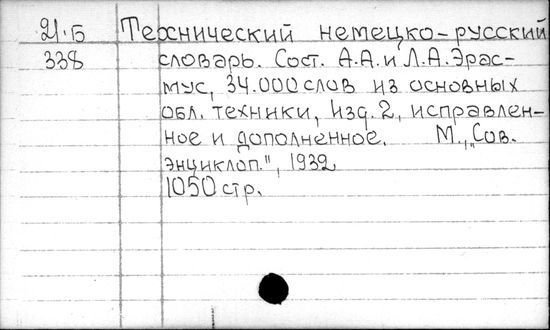 21.Б Технический немецко-русский
338 словарь. Сост. А.А. и Л.А. Эрас-
мус, 34.000 слов из основных
обл. техники, Изд. 2, исправлен-
ное и дополненное. М., „Сов.
энциклоп.", 1932
1050 стр.